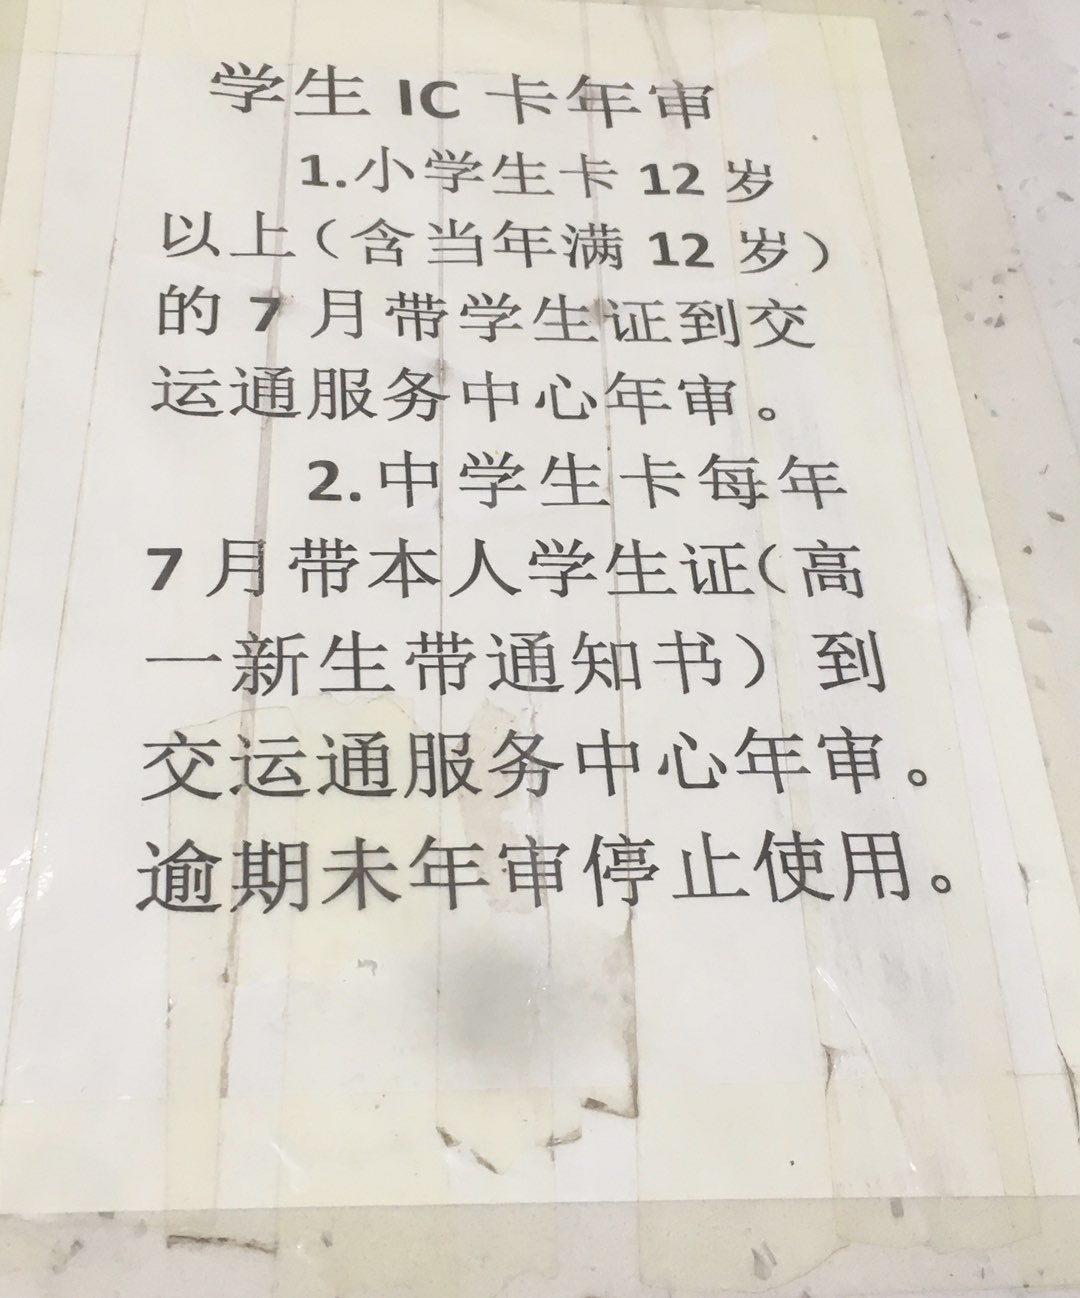 学生 IC 卡年审
1.小学生卡 12 岁
以上（含当年满 12 岁）
的 7 月带学生证到交
运通服务中心年审。
2.中学生卡每年
7 月带本人学生证（高
一新生带通知书）到
交运通服务中心年审。
逾期未年审停止使用。